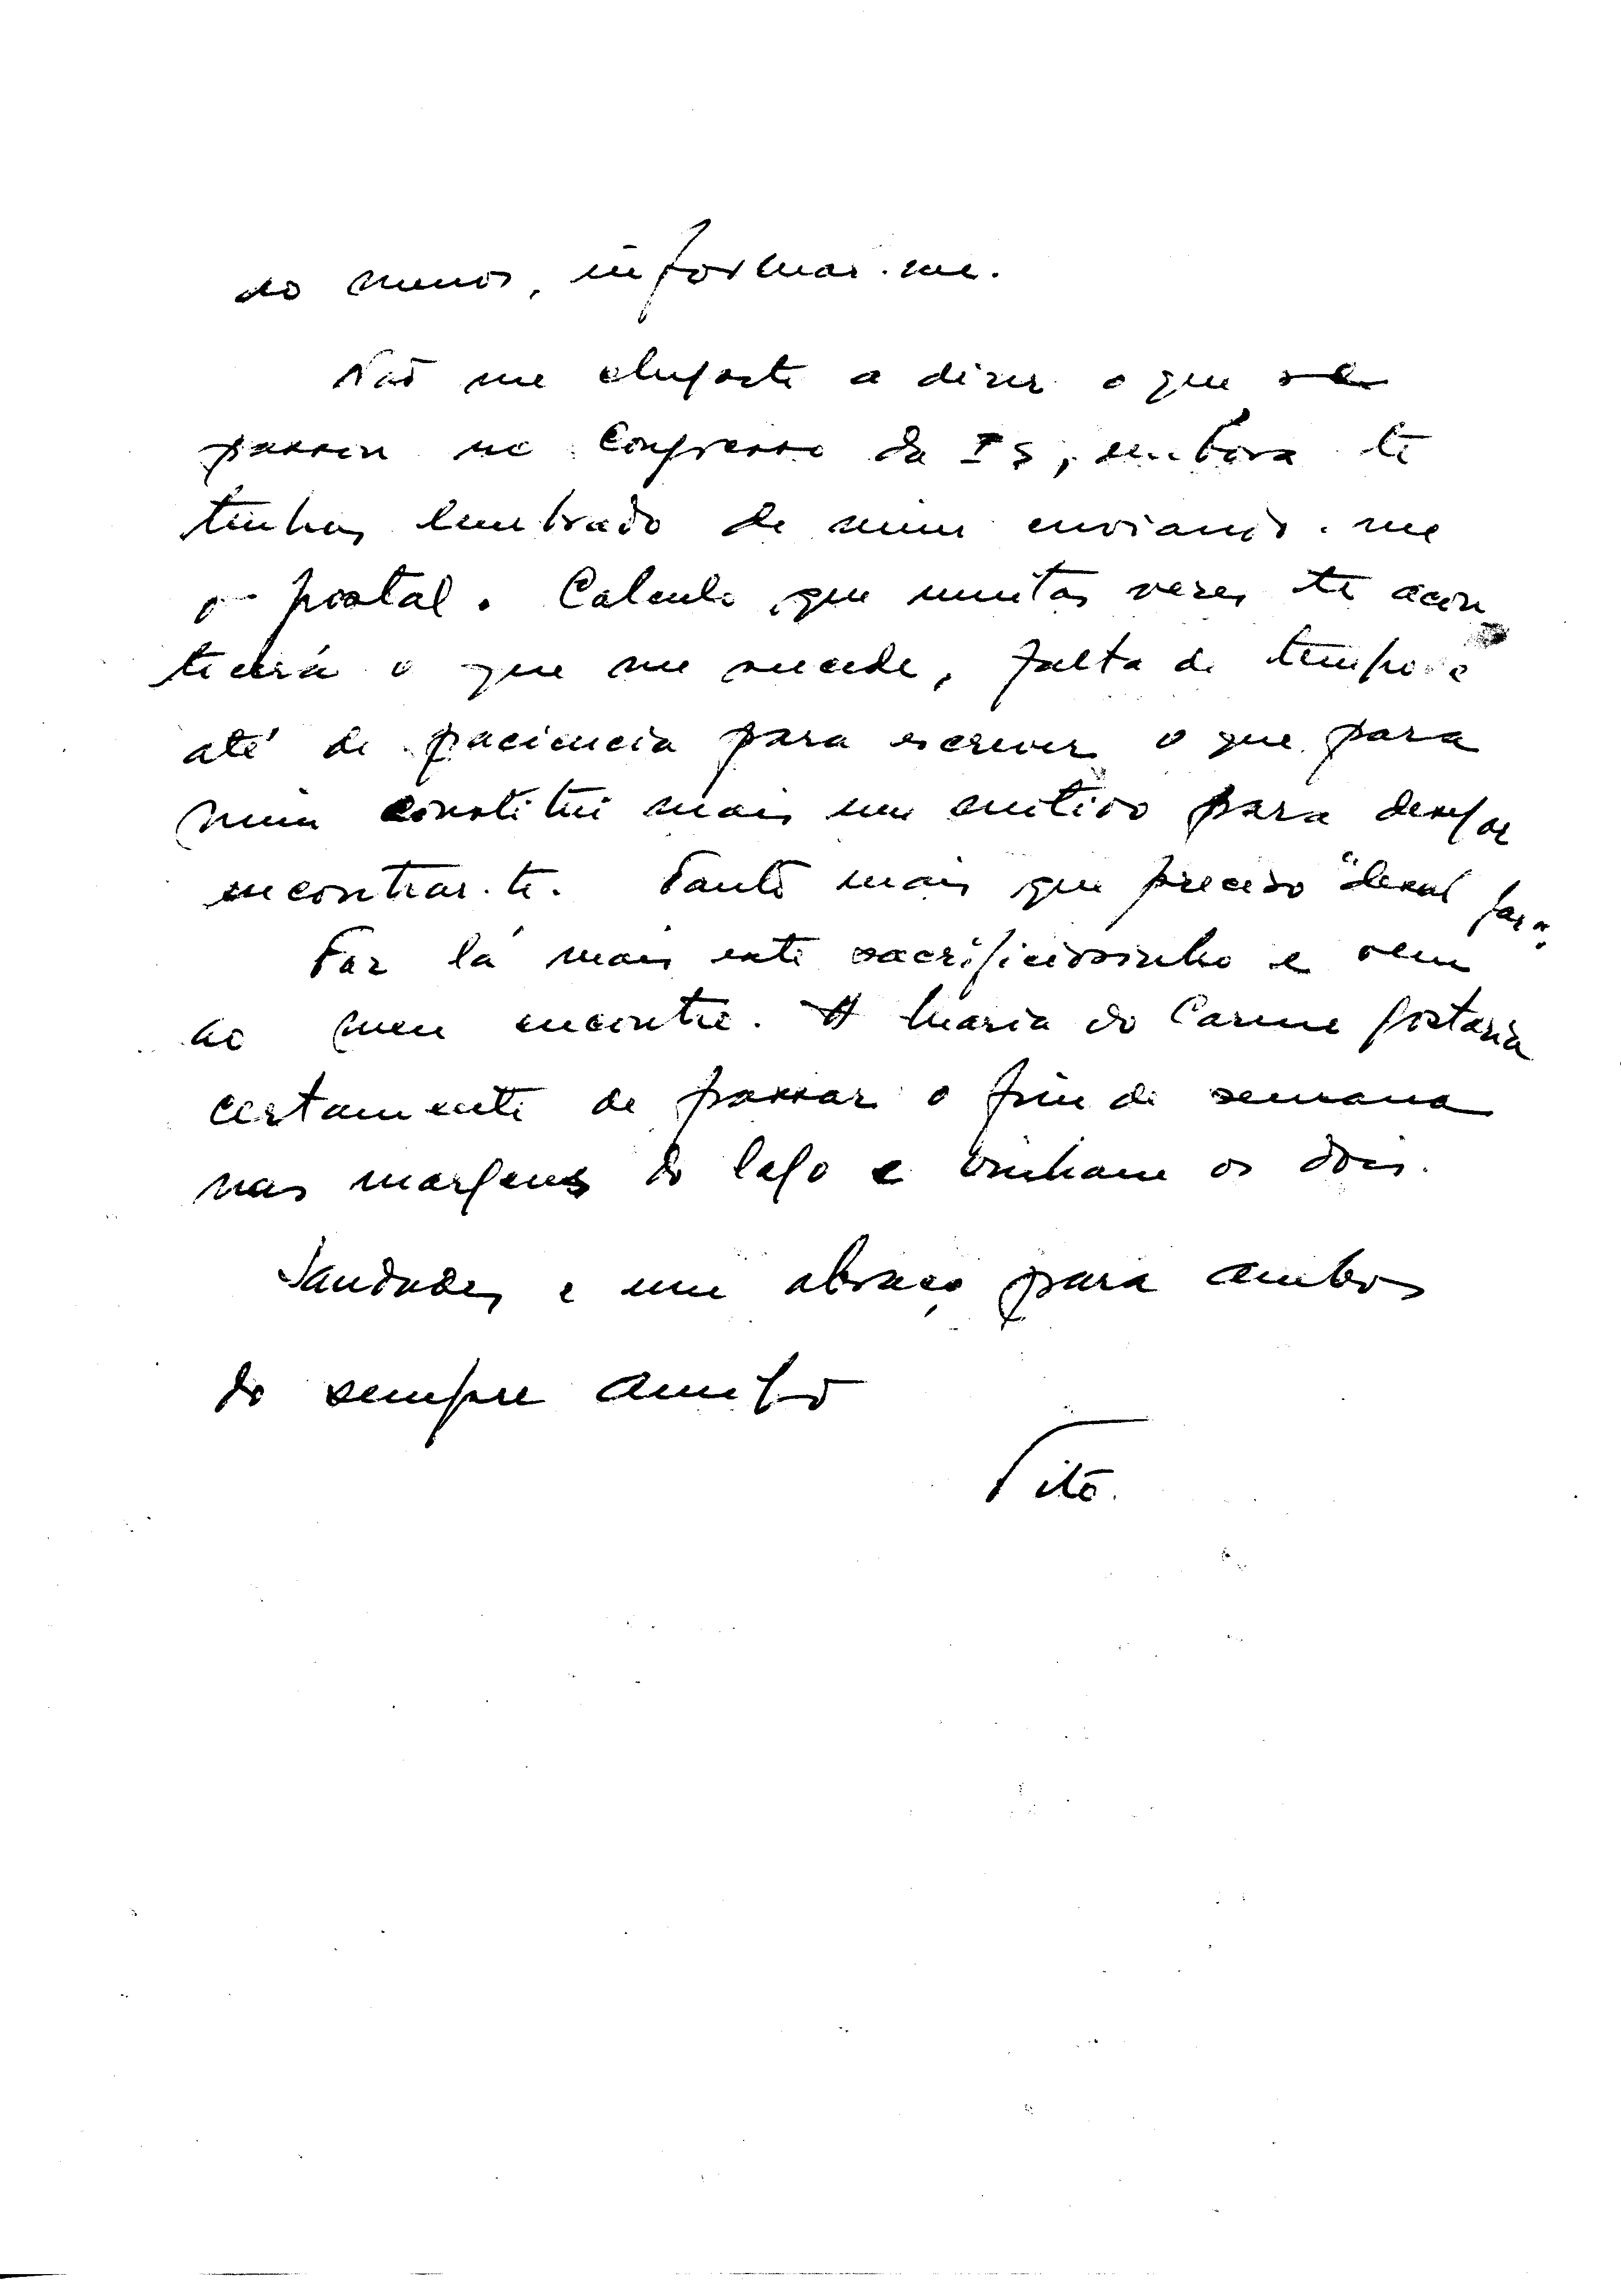 ao menos, informar-me.
Não me chegaste a dizer o que se
passou no Congresso da IS, embora te
tenhas lembrado de mim enviando-me
o postal. Calculo que muitas vezes te acon
tecerá o que me sucede, falta de tempo e
até de paciencia para escrever o que para
mim constitui mais um motivo para desejar
encontrar-te. Tanto mais que preciso "desabafar"
Faz lá mais este sacrificiosinho e vem
ao meu encontro. A Maria do Carmo gostaria
certamente de passar o fim de semana
nas margens do lago e vinham os dois.
Saudades e um abraço para ambos
do sempre amigo
Tito.